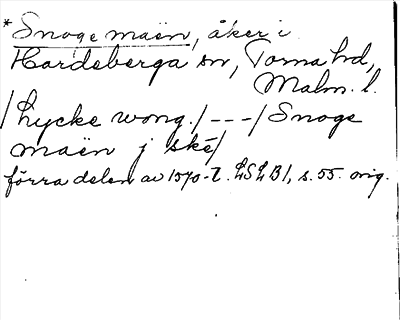 * Snoge maën, åker i
Hardeberga sn, Torna hd,
Malm. l.
/ Lycke wong. / - - - / Snoge
maën j ské /
förra delen av 1570-t. LSLB1, s. 55. orig.